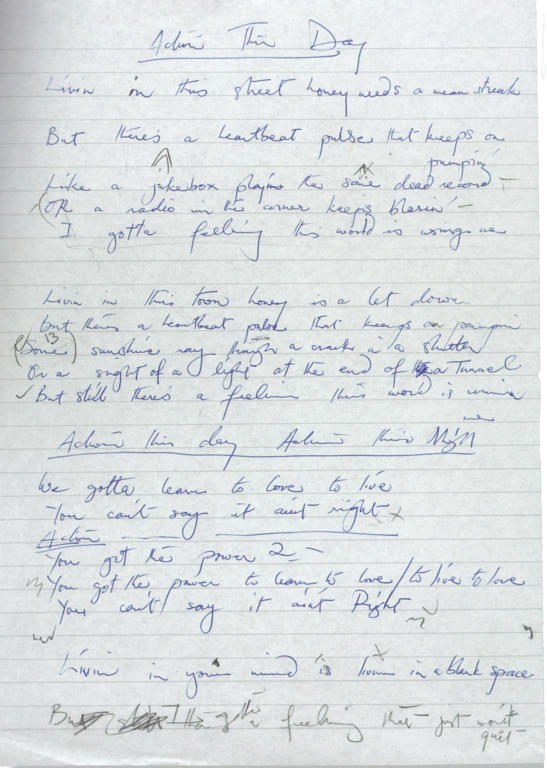 Action This Day
Livin in this street honey needs a mean streak
But there's a heartbeat pulse that keeps on
pumpin'
Like a jukebox playin the same dead record –
(OR a radio in the corner keeps blarin' –
I gotta feeling this world is using me
Livin in this town honey is a let down
but there's a heartbeat pulse that keeps on pumpin
(Some) sunshine ray through a crack in a shutter
Or a sight of a light at the end of a Tunnel
✓ But still there's a feelin this world is
Action this day Action this Night
We gotta learn to love to live
You can't say it aint right x x
Action
You got the power 2 –
You got the power to learn to love / to live to love
You can't say it ain't Right
Livin in your mind is livin in a blank space
But I the feeling that just won't
quit –